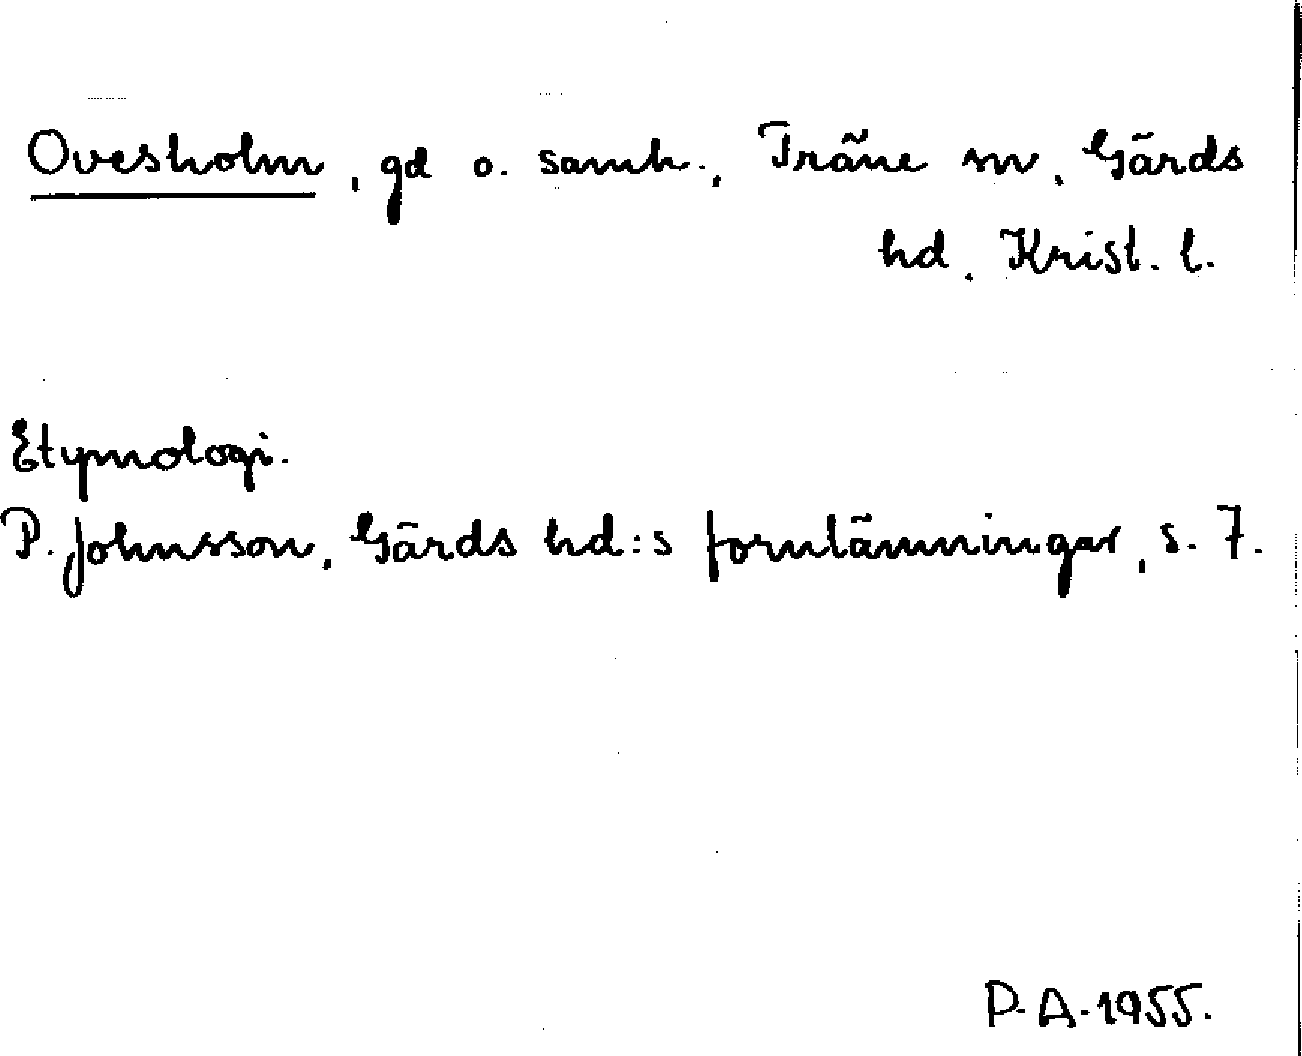 Ovesholm, gd o. samh., Träne sn, Gärds
hd, Krist. l.
Etymologi.
P. Johnsson, Gärds hd:s fornlämningar, s. 7.
P. A. 1955.